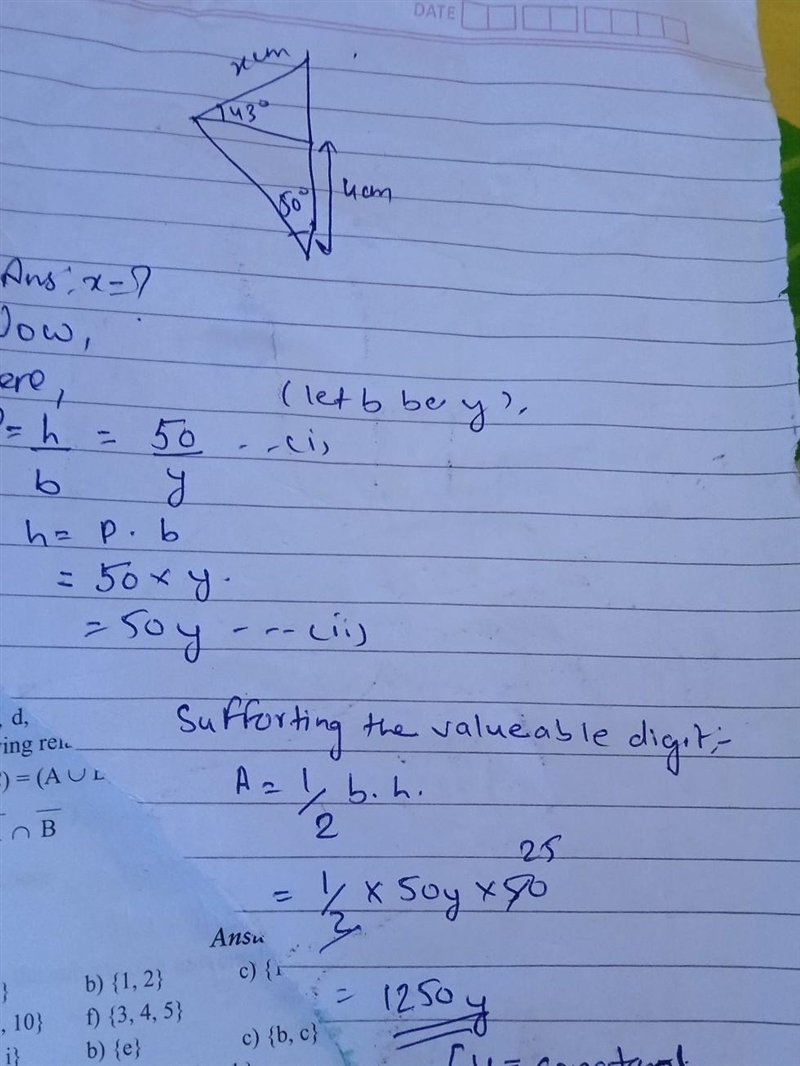 DATE
x cm
43°
50°
4cm
Ans: x=?
Now,
ere,
(let b be y).
= h/b = 50/y --- (i)
h = P . b
= 50 × y.
= 50y --- (ii)
d,
Sufforting the valueable digit:-
) = (A ∪
A = 1/2 b. h.
∩ B̅
25
= 1/2 × 50y × 50
Answ
= 1250y
}
b) {1, 2}
c) {1
, 10}
f) {3, 4, 5}
i}
b) {e}
c) {b, c}